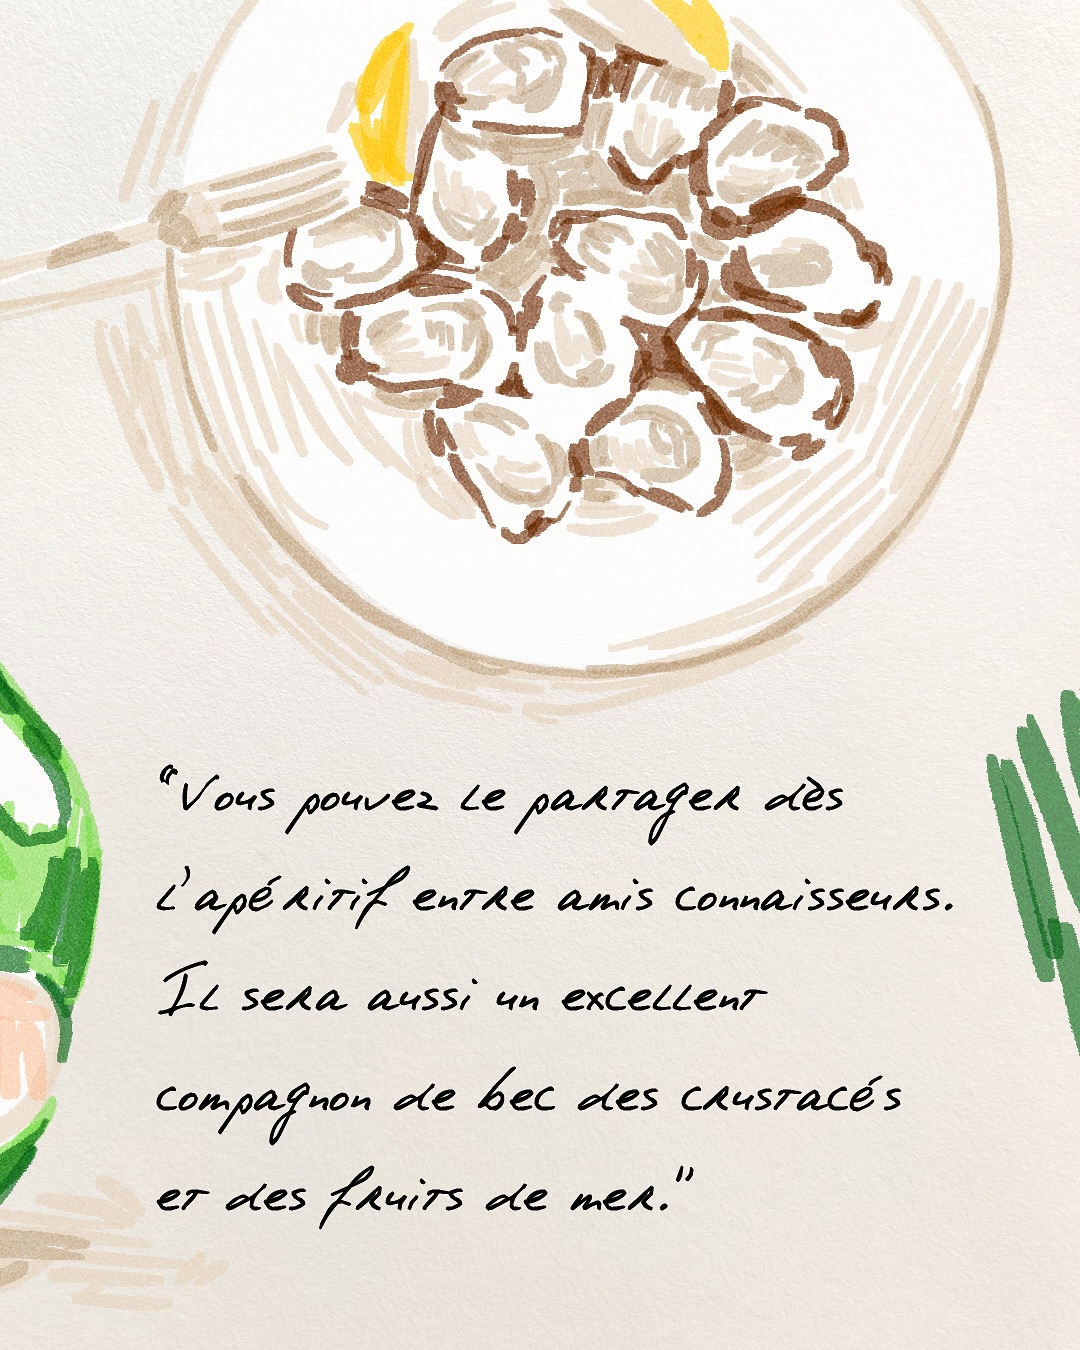 “Vous pouvez le partager dès
l'apéritif entre amis connaisseurs.
Il sera aussi un excellent
compagnon de bec des crustacés
et des fruits de mer."